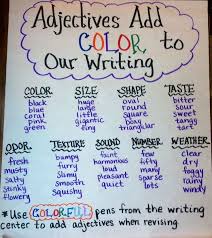 Adjectives Add
COLOR to
Our Writing
COLOR SIZE SHAPE TASTE
black huge oval bitter
blue large round sour
coral little square sweet
pink gigantic boxy tart
green tiny triangular tart
ODOR TEXTURE SOUND NUMBER WEATHER
fresh bumpy faint few clear
musty furry harmonious fifty rainy
smelly slimy loud many foggy
salty smooth pleasant quiet sparse cloudy
stinky squishy quiet lots windy
flowery
*Use COLORFUL pens from the writing
center to add adjectives when revising.